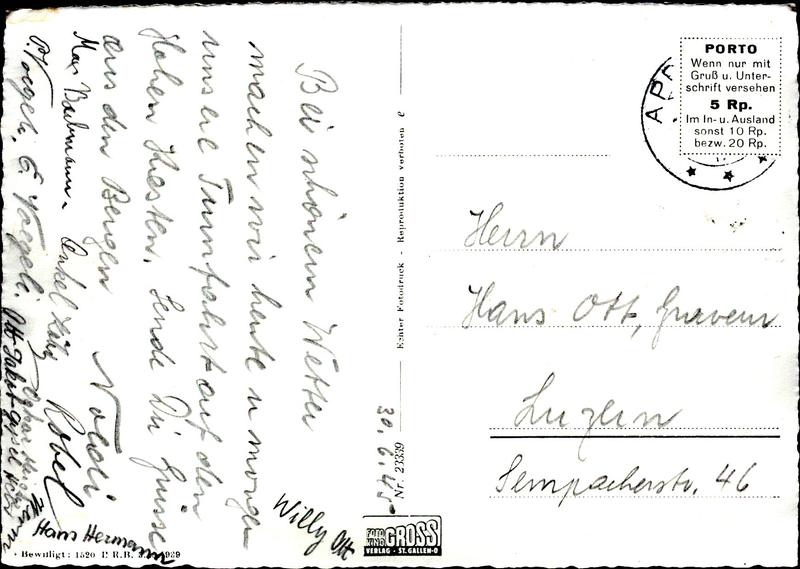 Bei schönem Wetter
machen wir heute u morgen
unsere Turnfahrt auf den
Hohen Kasten. Sende Dir Grüsse
aus den Bergen
Noldi
Max Bachmann. Onkel
Robel
P. Voegeli. E. Voegeli.
Hans Hermann
Willy Ott
30. 6. 45
PORTO
Wenn nur mit
Gruß u. Unter-
schrift versehen
5 Rp.
Im In- u. Ausland
sonst 10 Rp.
bezw. 20 Rp.
Herrn
Hans Ott, Graveur
Luzern
Sempacherstr. 46
Echter Fotodruck - Reproduktion verboten
Nr. 23339
FOTO
GROSS
VERLAG · ST. GALLEN-O
• Bewilligt: 1520 P. R.B.